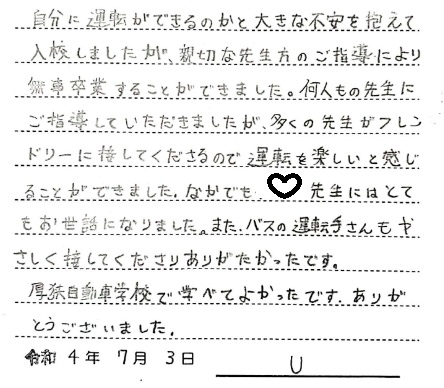 自分に運転ができるのかと大きな不安を抱えて
入校しましたが、親切な先生方のご指導により
無事卒業することができました。何人もの先生に
ご指導していただきましたが、多くの先生がフレン
ドリーに接してくださるので運転を楽しいと感じ
ることができました。なかでも、♡先生にはとて
もお世話になりました。また、バスの運転手さんもや
さしく接してくださりありがたかったです。
厚狭自動車学校で学べてよかったです。ありが
とうございました。
令和4年7月3日 U